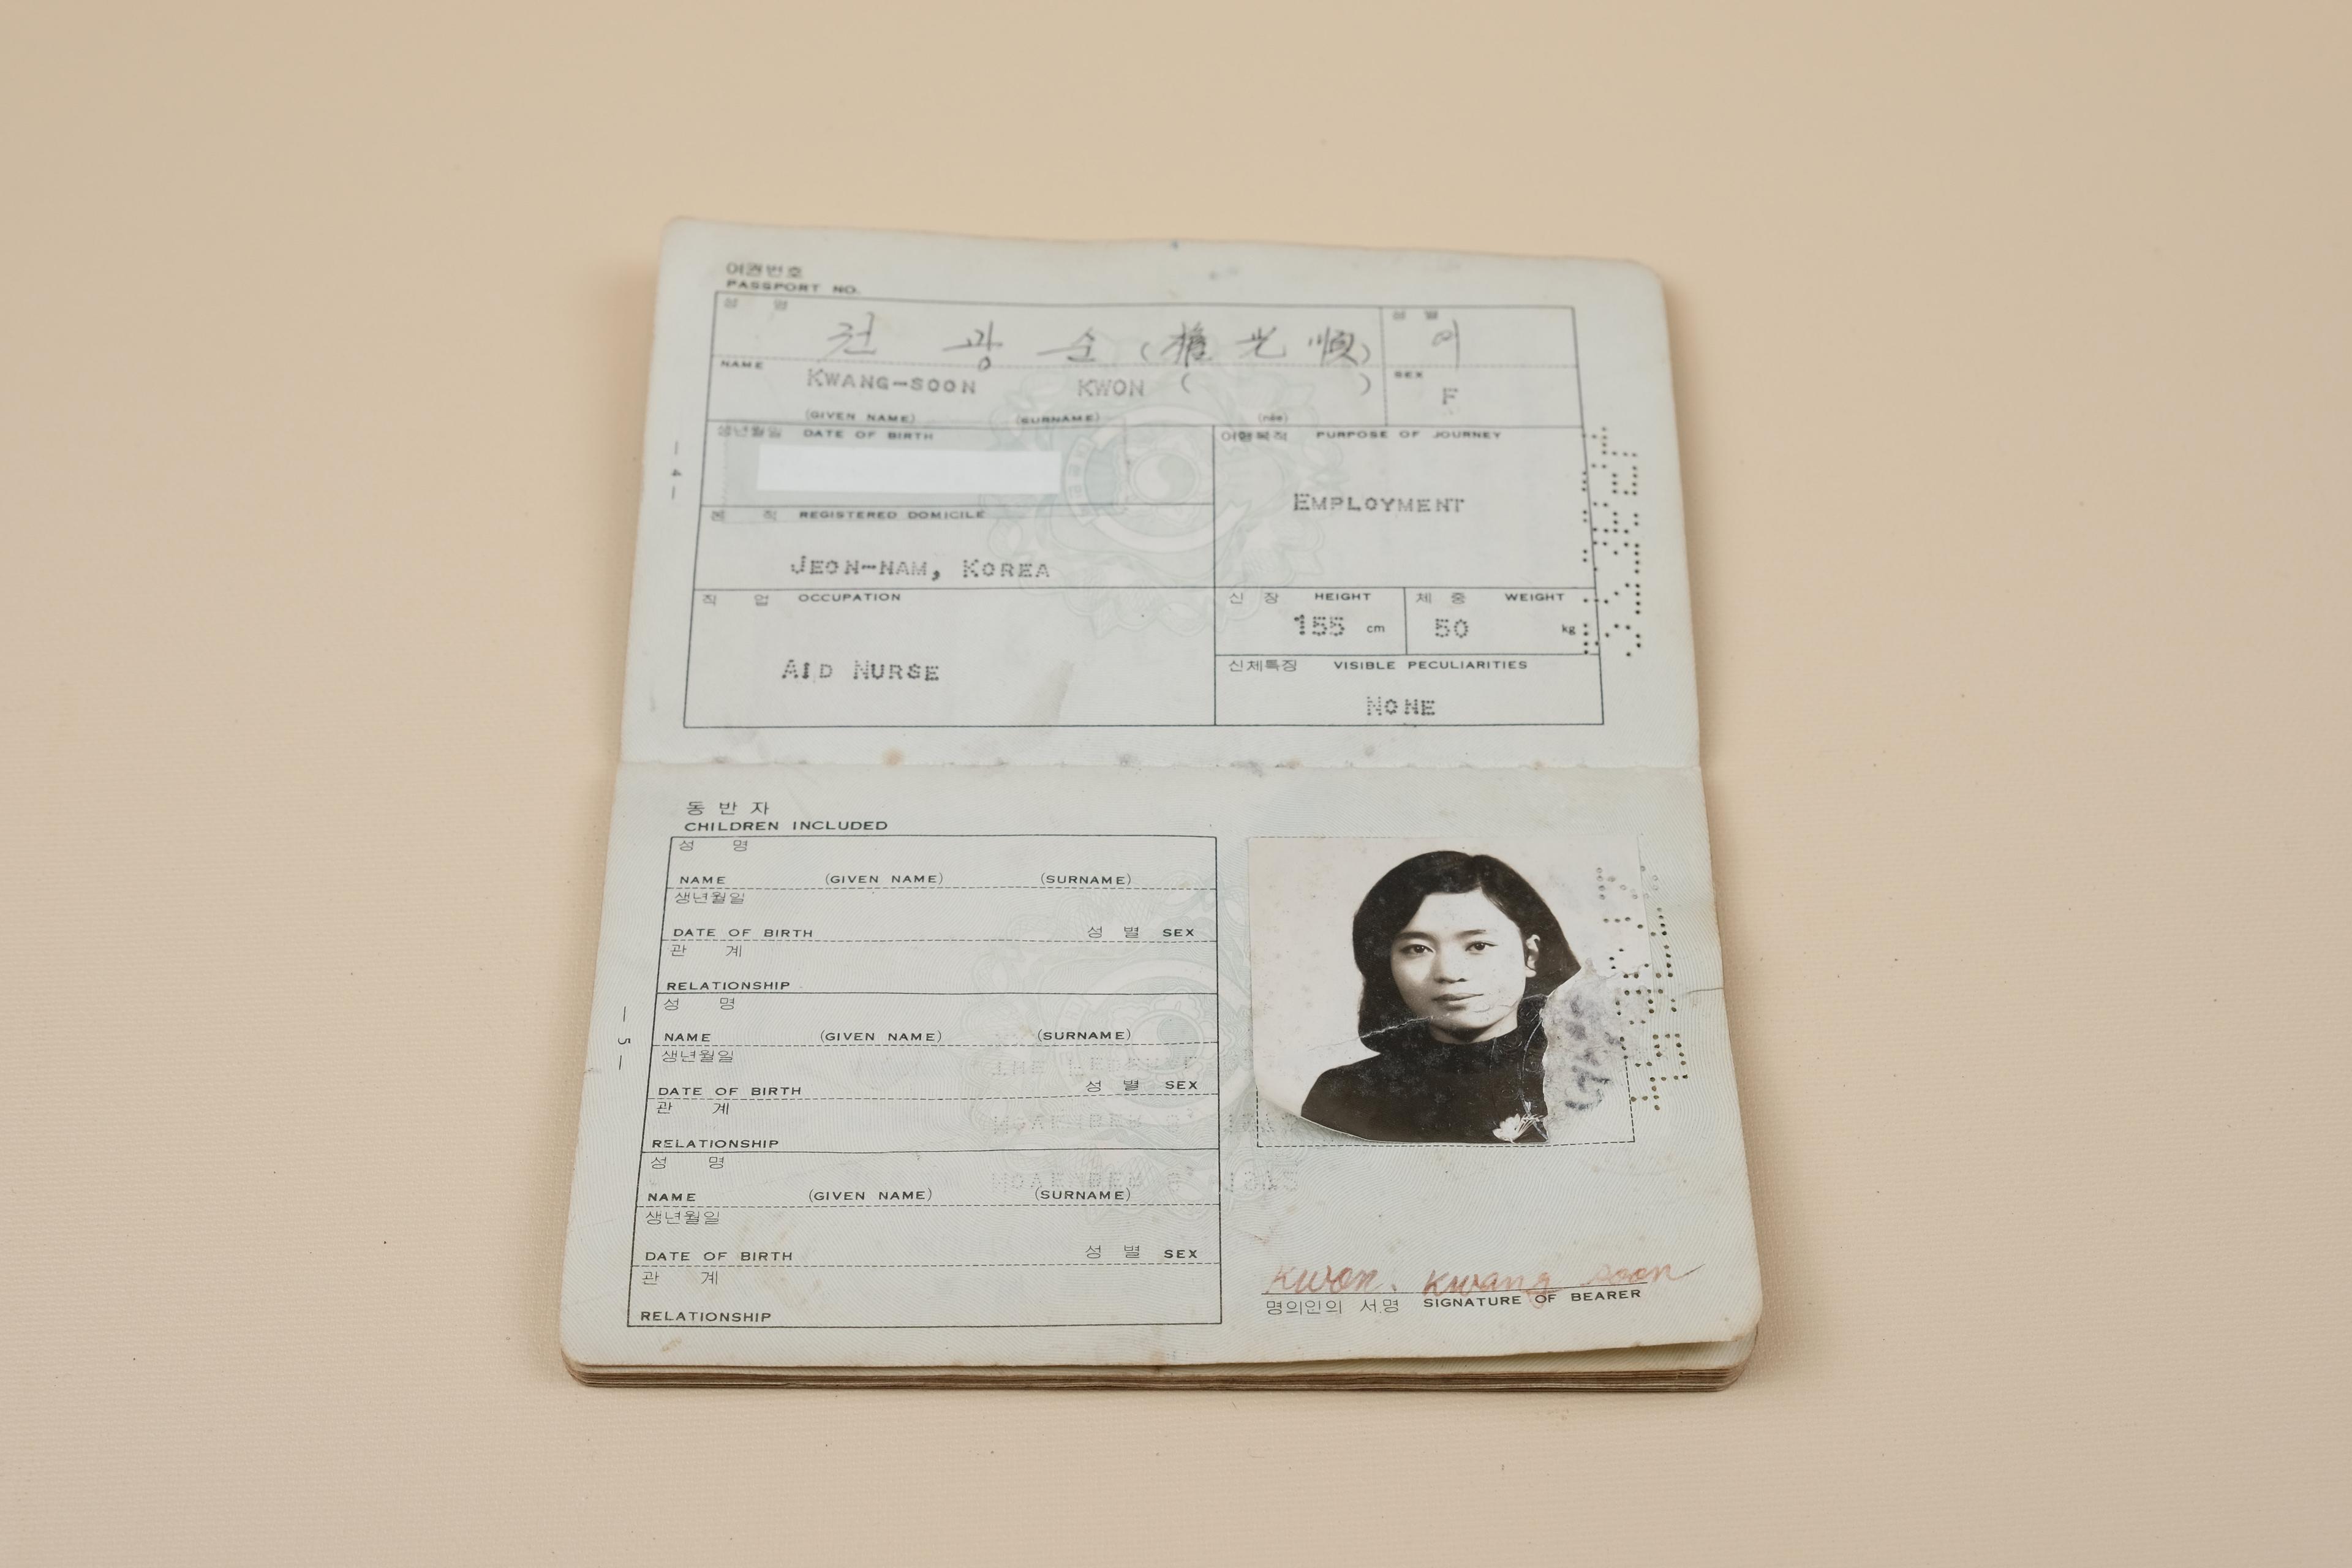 여권번호
PASSPORT NO.
성 명
권 광 순 (權光順)
성 별
여
NAME
KWANG-SOON KWON ( )
SEX
F
(GIVEN NAME) (SURNAME) (née)
생년월일 DATE OF BIRTH
여행목적 PURPOSE OF JOURNEY
EMPLOYMENT
본 적 REGISTERED DOMICILE
JEON-NAM, KOREA
직 업 OCCUPATION
AID NURSE
신 장 HEIGHT
155 cm
체 중 WEIGHT
50 kg
신체특징 VISIBLE PECULIARITIES
NONE
— 4 —
동 반 자
CHILDREN INCLUDED
성 명
NAME (GIVEN NAME) (SURNAME)
생년월일
DATE OF BIRTH 성 별 SEX
관 계
RELATIONSHIP
성 명
NAME (GIVEN NAME) (SURNAME)
생년월일
DATE OF BIRTH 성 별 SEX
관 계
RELATIONSHIP
성 명
NAME (GIVEN NAME) (SURNAME)
생년월일
DATE OF BIRTH 성 별 SEX
관 계
RELATIONSHIP
— 5 —
Kwon. Kwang soon
명의인의 서명 SIGNATURE OF BEARER